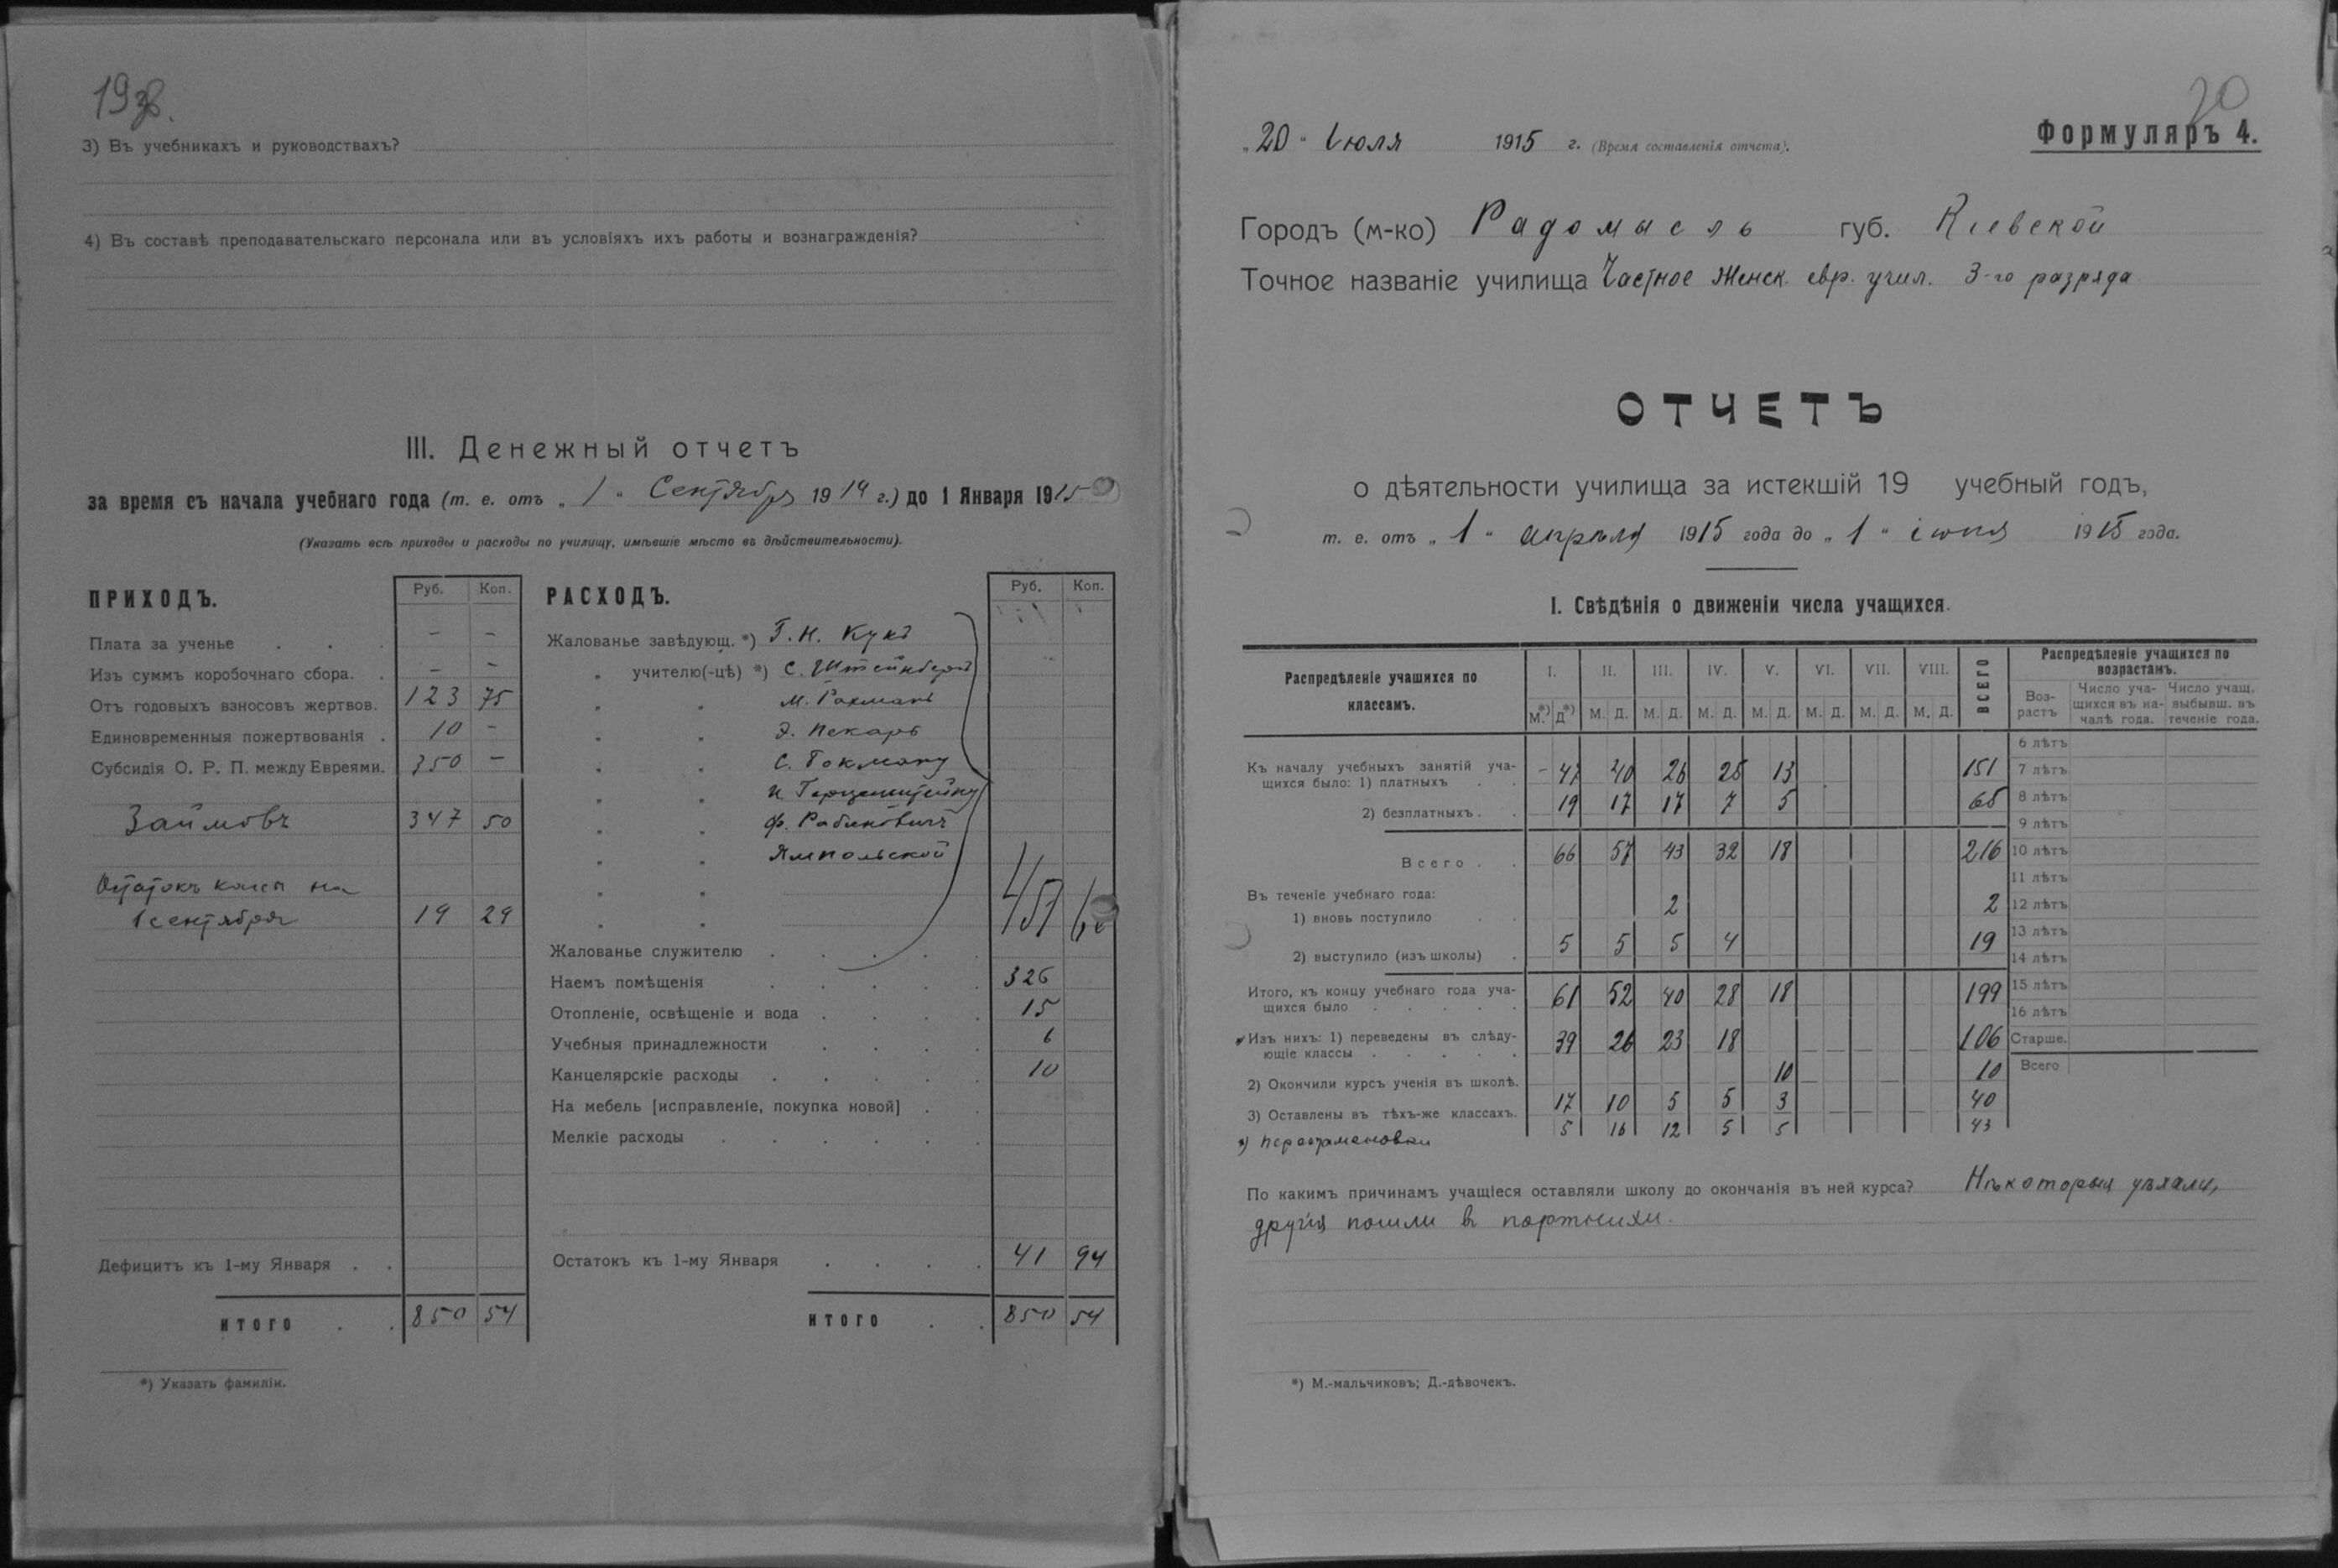 19
3) Въ учебникахъ и руководствахъ?
4) Въ составѣ преподавательскаго персонала или въ условіяхъ ихъ работы и вознагражденія?
III. Денежный отчетъ
за время съ начала учебнаго года (т. е. отъ „ 1 " Сентября 1914 г.) до 1 Января 1915
(Указать всѣ приходы и расходы по училищу, имѣвшіе мѣсто въ дѣйствительности).
ПРИХОДЪ. Руб. Коп.
Плата за ученье . . . – –
Изъ суммъ коробочнаго сбора. . – –
Отъ годовыхъ взносовъ жертвов. 123 75
Единовременныя пожертвованія . 10 –
Субсидія О. Р. П. между Евреями. 350 –
Займовъ 347 50
Остатокъ кассы на
1 сентября 19 29
Дефицитъ къ 1-му Января . .
ИТОГО . . 850 54
РАСХОДЪ. Руб. Коп.
Жалованье завѣдующ. *) Г. Н. Кукъ
„ учителю(-цѣ) *) С. Штейнбергъ
„ „ М. Рохманъ
„ „ Э. Пекарь
„ „ С. Гокману
„ „
„ „ Ф. Рабиновичъ
„ „ Ямпольской
„ „
„ „ 451 60
Жалованье служителю . . . .
Наемъ помѣщенія . . . . . 326
Отопленіе, освѣщеніе и вода . . . . 15
Учебныя принадлежности . . . . 6
Канцелярскіе расходы . . . . . 10
На мебель [исправленіе, покупка новой] . .
Мелкіе расходы . . . . . .
Остатокъ къ 1-му Января . . . . 41 94
ИТОГО . . 850 54
*) Указать фамиліи.
20
„ 20 " Іюля 1915 г. (Время составленія отчета).
Формуляръ 4.
Городъ (м-ко) Радомысль губ. Кіевской
Точное названіе училища Частное Женск. евр. учил. 3-го разряда
ОТЧЕТЪ
о дѣятельности училища за истекшій 19 учебный годъ,
т. е. отъ „ 1 " апрѣля 1915 года до „ 1 " іюня 1915 года.
I. Свѣдѣнія о движеніи числа учащихся.
Распредѣленіе учащихся по классамъ. I. II. III. IV. V. VI. VII. VIII. ВСЕГО
М.*) Д*) М. Д. М. Д. М. Д. М. Д. М. Д. М. Д. М. Д.
Къ началу учебныхъ занятій уча-
щихся было: 1) платныхъ . . – 47 40 26 25 13 151
2) безплатныхъ . . 19 17 17 7 5 65
Всего . . 66 57 43 32 18 216
Въ теченіе учебнаго года:
1) вновь поступило . . 2 2
2) выступило (изъ школы) . 5 5 5 4 19
Итого, къ концу учебнаго года уча-
щихся было . . . . . 61 52 40 28 18 199
Изъ нихъ: 1) переведены въ слѣду-
ющіе классы . . . . . 39 26 23 18 106
2) Окончили курсъ ученія въ школѣ. 10 10
3) Оставлены въ тѣхъ-же классахъ. 17 10 5 5 3 40
*) Переэкзаменовки 5 16 12 5 5 43
Распредѣленіе учащихся по возрастамъ.
Воз-растъ Число уча-щихся въ на-чалѣ года. Число учащ. выбывш. въ теченіе года.
6 лѣтъ
7 лѣтъ
8 лѣтъ
9 лѣтъ
10 лѣтъ
11 лѣтъ
12 лѣтъ
13 лѣтъ
14 лѣтъ
15 лѣтъ
16 лѣтъ
Старше.
Всего
По какимъ причинамъ учащіеся оставляли школу до окончанія въ ней курса? Нѣкоторыя уѣхали,
другія пошли въ портнихи.
*) М.-мальчиковъ; Д.-дѣвочекъ.